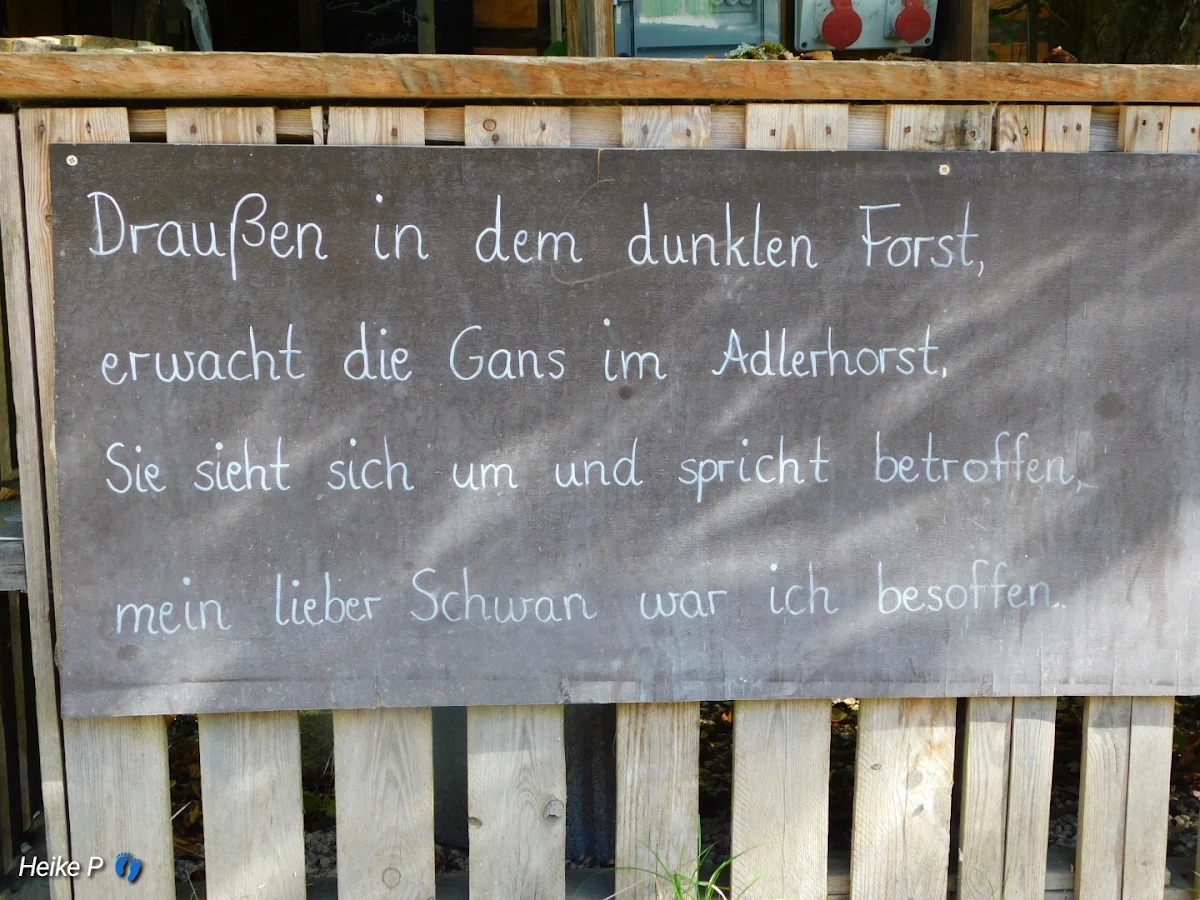 Draußen in dem dunklen Forst,
erwacht die Gans im Adlerhorst,
Sie sieht sich um und spricht betroffen,
mein lieber Schwan war ich besoffen..
Heike P